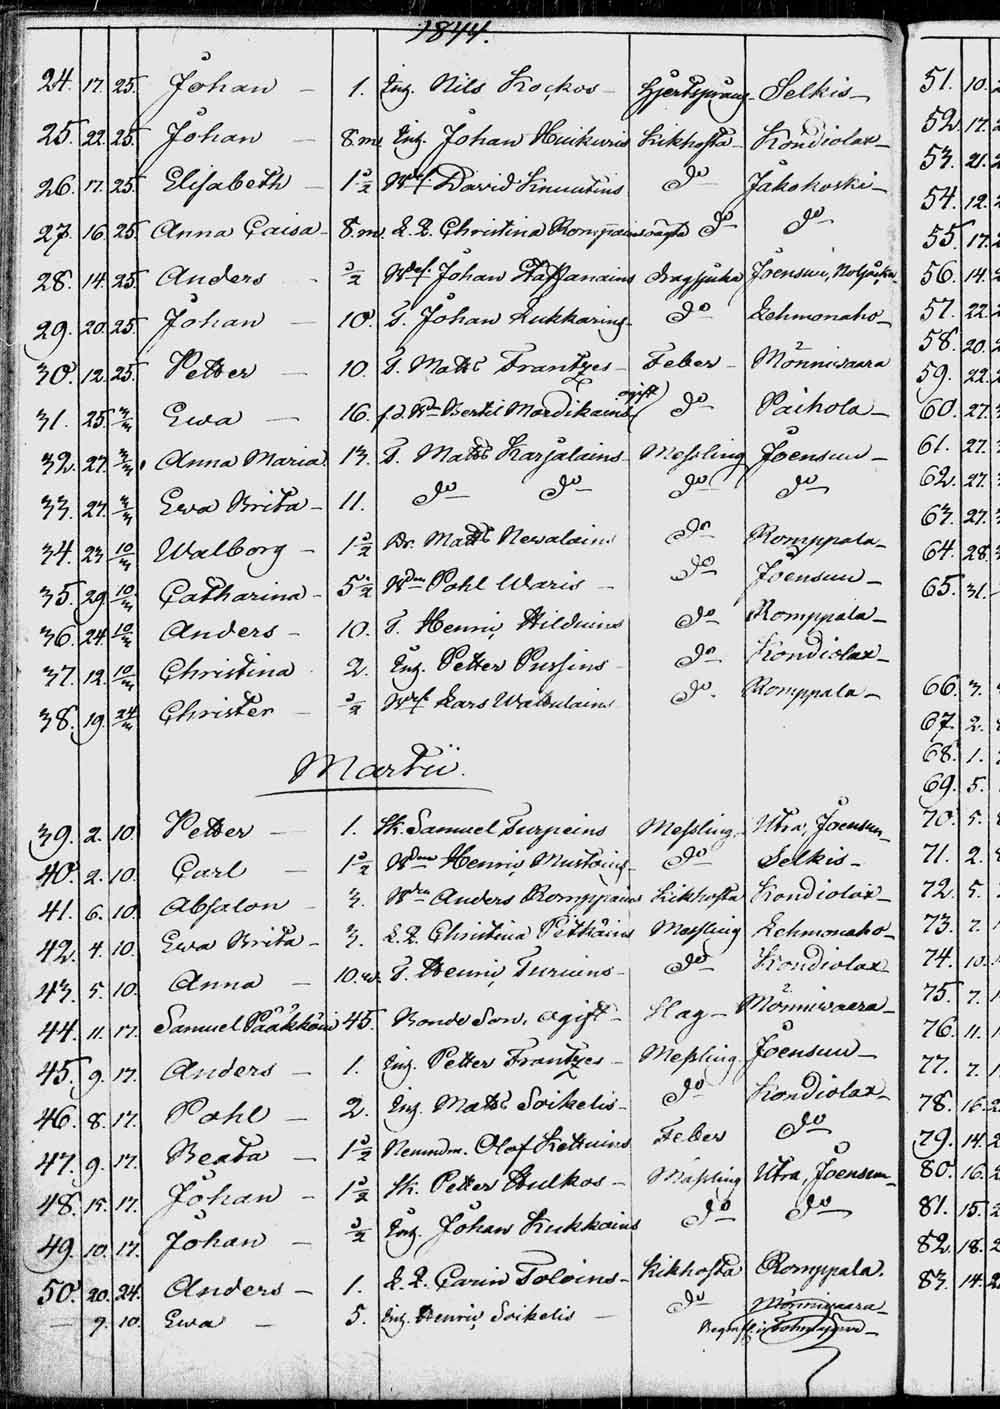 1844.
24. 17. 25. Johan — 1. Inh. Nils Kockos — Hjertsprång Selkis —
25. 22. 25. Johan — 8.m. Inh. Johan Huikuris Kikhosta — Kondiolax —
26. 17. 25. Elisabeth — 1 ½ David Knuutins do Jakokoski —
27. 16. 25. Anna Caisa — 8.m. L. Q. Christina Romppains do do
28. 14. 25. Anders — ½ Johan Dragsjuka Joensuu,
29. 20. 25. Johan — 10. T. Johan Kukkarins do Lehmonaho —
30. 12. 25. Petter — 10. T. Matts Frantzes — Feber — Mönnivaara
31. 25. 3/m Ewa — 16. Bertil Mardikains ogift do Paihola —
32. 27. 3/m Anna Maria 13. T. Matts Karjalains Messling Joensuu —
33. 27. 3/m Ewa Brita — 11. do do do do
34. 23. 10/m Walborg — 1 ½ Dr. Matts Newalains do Romppala —
35. 29. 10/m Catharina — 5 ½ Pohl Waris — do Joensuu —
36. 24. 10/m Anders — 10. T. Henric Hilduins do Romppala —
37. 12. 10/m Christina 2. Inh. Petter Pursins — do Kondiolax —
38. 19. 24/m Christer — ½ Lars do. Romppala —
Martii.
39. 2. 10. Petter — 1. Sk. Samuel Turpeins Messling Utra, Joensuu
40. 2. 10. Carl — 1 ½ Henric Mustoins do Selkis —
41. 6. 10. Absalon — 3. Anders Romppains Kikhosta Kondiolax —
42. 4. 10. Ewa Brita — 3. L. Q. Christina Pitkäins Messling Lehmonaho —
43. 5. 10. Anna — 10. T. Henric Turuins — do Kondiolax
44. 11. 17. Samuel Pääkköin 45. Bonde Son, ogift — Slag — Mönnivaara —
45. 9. 17. Anders — 1. Inh. Petter Frantzes — Messling Joensuu —
46. 8. 17. Pohl — 2. Inh. Matts Soikelis — do Kondiolax —
47. 9. 17. Beata — 1 ½ Olof Kettuins Feber do
48. 15. 17. Johan — 1 ½ Sk. Petter Hulkos — Messling Utra, Joensuu
49. 10. 17. Johan — ½ Inh. Johan Kukkoins do do
50. 20. 24. Anders — 1. L. Q. Carin Toloins — Kikhosta Romppala.
— 9. 10. Ewa — 5. Inh. Henric Soikelis — do Mönnivaara —
51. 10.
52. 17.
53. 21.
54. 12.
55. 17.
56. 14.
57. 22.
58. 20.
59. 22.
60. 27.
61. 27.
62. 27.
63. 27.
64. 28.
65. 31.
66. 3.
67. 2.
68. 1.
69. 5.
70. 5.
71. 2.
72. 5.
73. 7.
74. 10.
75. 7.
76. 11.
77. 7.
78. 16.
79. 14.
80. 16.
81. 15.
82. 18.
83. 14.